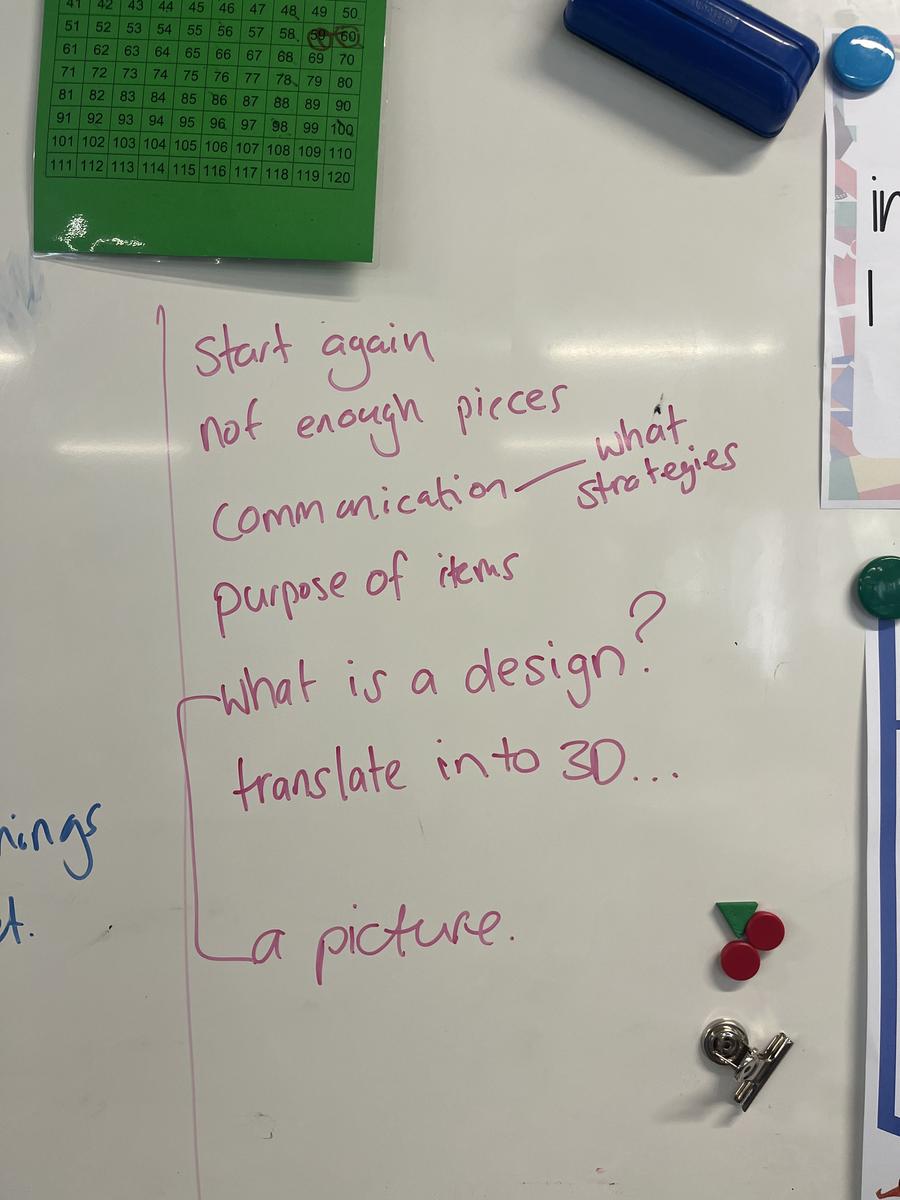 41 42 43 44 45 46 47 48 49 50
51 52 53 54 55 56 57 58 59 60
61 62 63 64 65 66 67 68 69 70
71 72 73 74 75 76 77 78 79 80
81 82 83 84 85 86 87 88 89 90
91 92 93 94 95 96 97 98 99 100
101 102 103 104 105 106 107 108 109 110
111 112 113 114 115 116 117 118 119 120
Start again
not enough pieces
Communication — what
strategies
purpose of items
what is a design?
translate into 3D...
a picture.